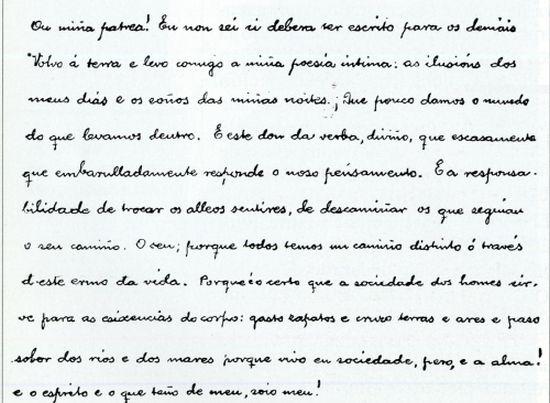 Ou miña patrea! Eu non sei si debera ser escrito para os demáis
"Volvo á terra e levo comigo a miña poesía íntima: as ilusións dos
meus días e os soños das miñas noites. ¡ Que pouco damos o mundo
do que levamos dentro. É este don da verba, diviño, que escasamente
que embarulladamente responde o noso pensamento. E a responsa-
bilidade de trocar os alleos sentires, de descamiñar os que seguían
o seu camiño. O seu; porque todos temos un camiño distinto ó través
d-este ermo da vida. Porque é o certo que a sociedade dos homes sir-
ve para as esixencias do corpo: gasto zapatos e cruzo terras e ares e paso
sobor dos ríos e dos mares porque vivo en sociedade, pero, e a alma!
e o esprito e o que teño de meu, soio meu!